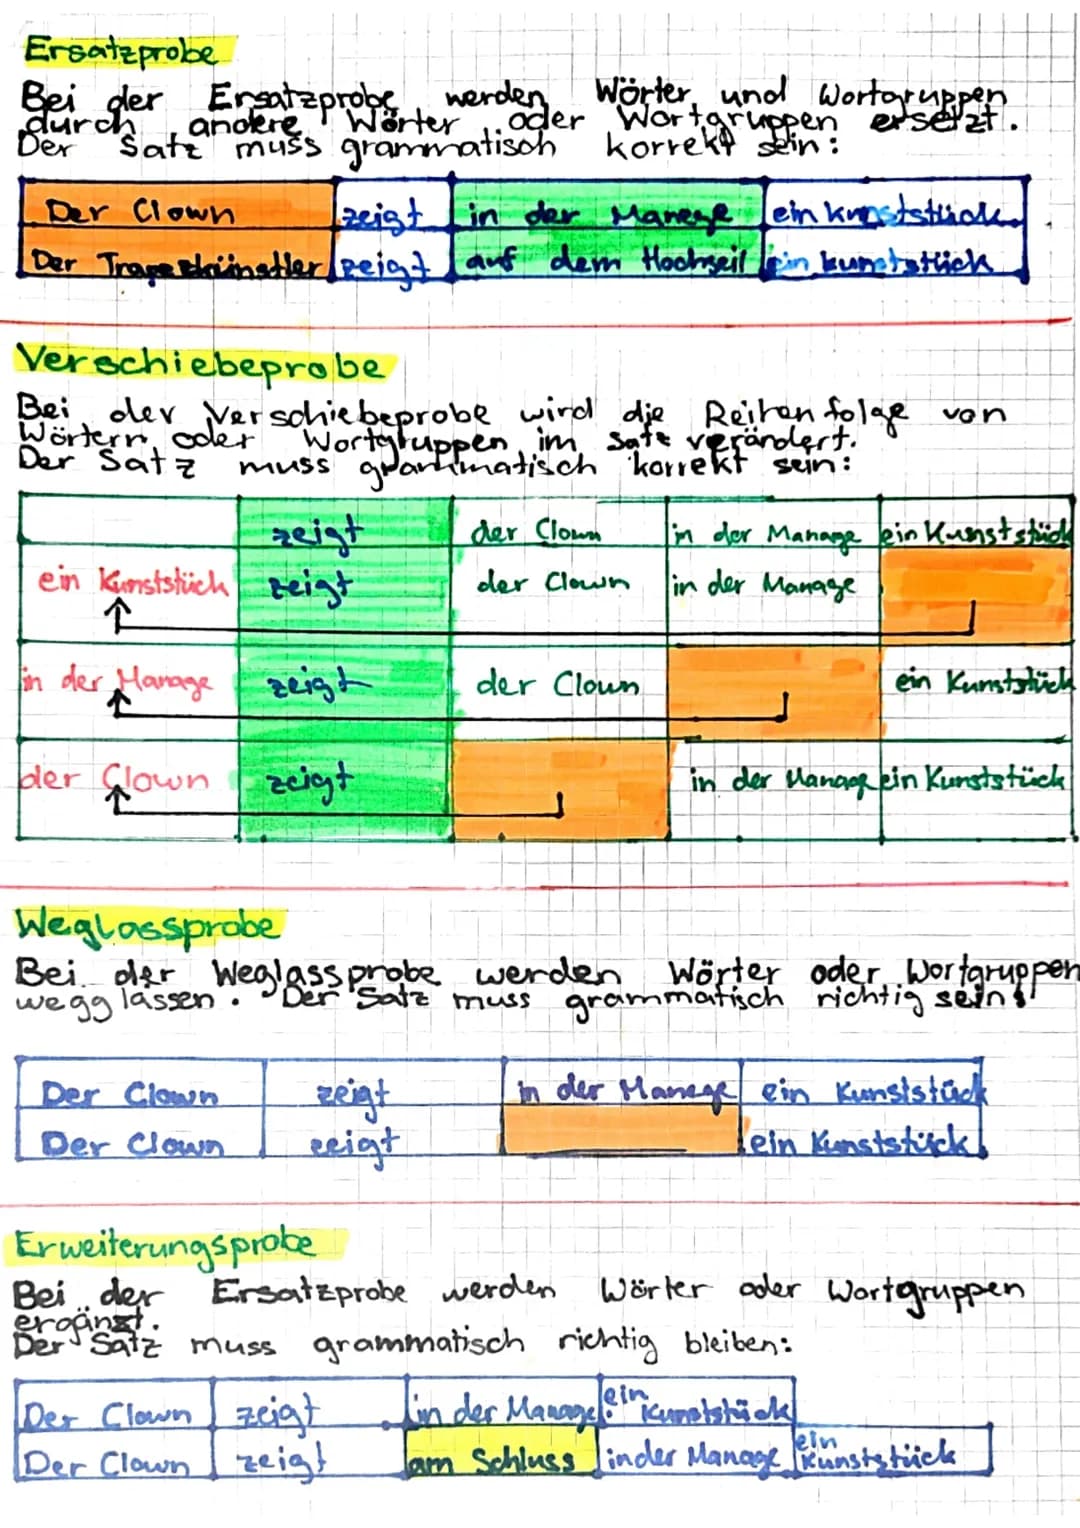 Ersatzprobe
Bei der Ersatzprobe werden Wörter und Wortgruppen
durch andere Wörter oder Wortgruppen ersetzt.
Der Satz muss grammatisch korrekt sein:
Der Clown zeigt in der Manege ein Kunststück
Der Trapezkünstler zeigt auf dem Hochseil ein kunststück
Verschiebeprobe
Bei der Verschiebeprobe wird die Reihenfolge von
Wörtern oder Wortgruppen im Satz verändert.
Der Satz muss grammatisch korrekt sein:
zeigt der Clown in der Manage ein Kunststück
ein Kunststück zeigt der Clown in der Manage
in der Manage zeigt der Clown ein Kunststück
der Clown zeigt in der Manage ein Kunststück
Weglassprobe
Bei der Weglassprobe werden Wörter oder Wortgruppen
wegglassen. Der Satz muss grammatisch richtig sein:
Der Clown zeigt in der Manege ein Kunststück
Der Clown zeigt ein Kunststück
Erweiterungsprobe
Bei der Ersatzprobe werden Wörter oder Wortgruppen
ergänzt.
Der Satz muss grammatisch richtig bleiben:
Der Clown zeigt in der Manage ein Kunststück
Der Clown zeigt am Schluss in der Manage ein Kunststück